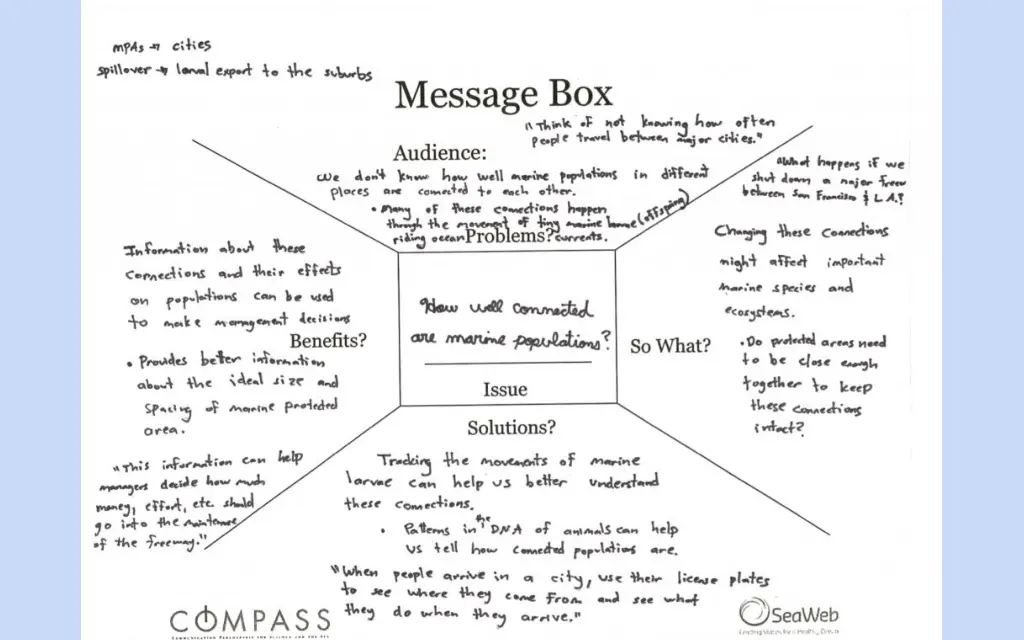 MPAs → cities
spillover → larval export to the suburbs
Message Box
"Think of not knowing how often
people travel between major cities."
Audience:
We don't know how well marine populations in different
places are connected to each other.
• Many of these connections happen
through the movement of tiny marine larvae (offspring)
riding ocean currents.
Problems?
"What happens if we
shut down a major freeway
between San Francisco & L.A.?
Information about these
connections and their effects
on populations can be used
to make management decisions
Benefits?
• Provides better information
about the ideal size and
spacing of marine protected
area.
"This information can help
managers decide how much
money, effort, etc. should
go into the maintance
of the freeway."
How well connected
are marine populations?
Issue
Changing these connections
might affect important
marine species and
ecosystems.
So What?
• Do protected areas need
to be close enough
together to keep
these connections
intact?
Solutions?
Tracking the movements of marine
larvae can help us better understand
these connections.
• Patterns in the DNA of animals can help
us tell how connected populations are.
"When people arrive in a city, use their license plates
to see where they come from and see what
they do when they arrive."
COMPASS
SeaWeb